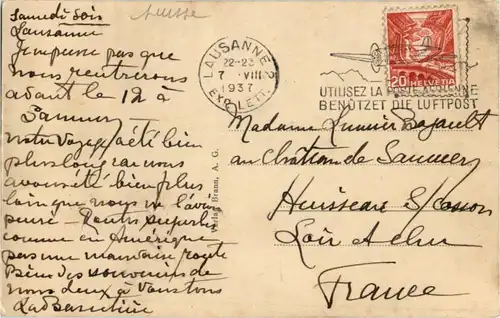 Suisse
Samedi Soir
Lausanne
Je ne pense pas que
nous rentrerons
avant le 12 à
Saumur
notre voyage a été bien
plus long car nous
avons été bien plus
loin que nous ne l'avions
pensé - Routes superbes
comme en Amérique
pas une mauvaise route
Bien des souvenirs de
nous deux à vous tous
LAUSANNE 2
22-23
7 VIII
1937
EXP. LETT.
UTILISEZ LA POSTE AERIENNE
BENÜTZET DIE LUFTPOST
20 HELVETIA
Verlag Braun, A. G.
Madame
au Château de Saumery
Huisseau s/Cosson
Loir et Cher
France